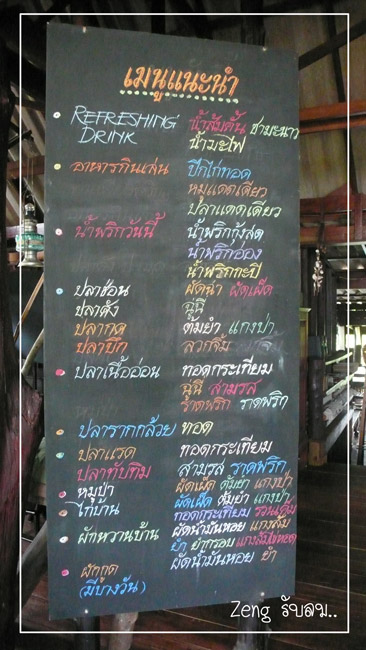 เมนูแนะนำ
REFRESHING น้ำส้มคั้น ชามะนาว
DRINK น้ำมะไฟ
อาหารกินเล่น ปีกไก่ทอด
หมูแดดเดียว
ปลาแดดเดียว
น้ำพริกวันนี้ น้ำพริกกุ้งสด
น้ำพริกอ่อง
น้ำพริกกะปิ
ปลาช่อน ผัดฉ่า ผัดเผ็ด
ปลาคัง ฉู่ฉี่
ปลากด ต้มยำ แกงป่า
ปลาบึก ลวกจิ้ม
ปลาเนื้ออ่อน ทอดกระเทียม
ฉู่ฉี่ สามรส
ราดพริก ราดพริก
ปลารากกล้วย ทอด
ปลาแรด ทอดกระเทียม
ปลาทับทิม สามรส ราดพริก
หมูป่า ผัดเผ็ด ต้มยำ แกงป่า
ไก่บ้าน ผัดเผ็ด ต้มยำ แกงป่า
ทอดกระเทียม รวนเค็ม
ผักหวานบ้าน ผัดน้ำมันหอย แกงส้ม
ยำ ยำกรอบ
ผักกูด ผัดน้ำมันหอย ยำ
(มีบางวัน)
Zeng รับลม..